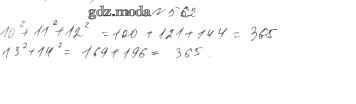 gdz.moda № 562
10² + 11² + 12² = 100 + 121 + 144 = 365
13² + 14² = 169 + 196 = 365.